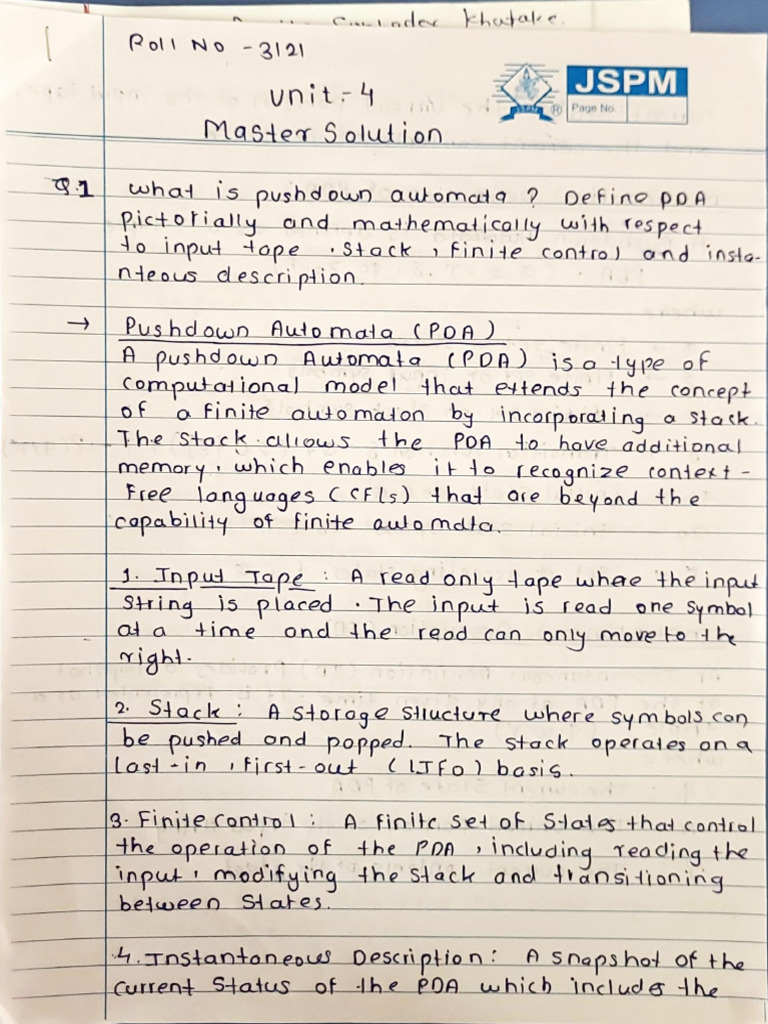 Khatake.
Roll No - 3121
JSPM
Page No.
Unit - 4
Master Solution
Q.1 What is pushdown automata ? Define PDA
pictorially and mathematically with respect
to input tape . Stack , finite control and insta-
nteous description.
→ Pushdown Automata (PDA)
A pushdown Automata (PDA) is a type of
computational model that extends the concept
of a finite automaton by incorporating a stack.
The stack allows the PDA to have additional
memory, which enables it to recognize context -
Free languages (CFls) that are beyond the
capability of finite automata.
1. Input Tape : A read only tape where the input
String is placed . The input is read one symbol
at a time and the read can only move to the
right.
2. Stack : A storage structure where symbols can
be pushed and popped. The stack operates on a
last-in , first-out (LIFO) basis.
3. Finite control : A finite set of States that control
the operation of the PDA , including reading the
input , modifying the stack and transitioning
between States.
4. Instantaneous Description : A snapshot of the
current Status of the PDA which includes the